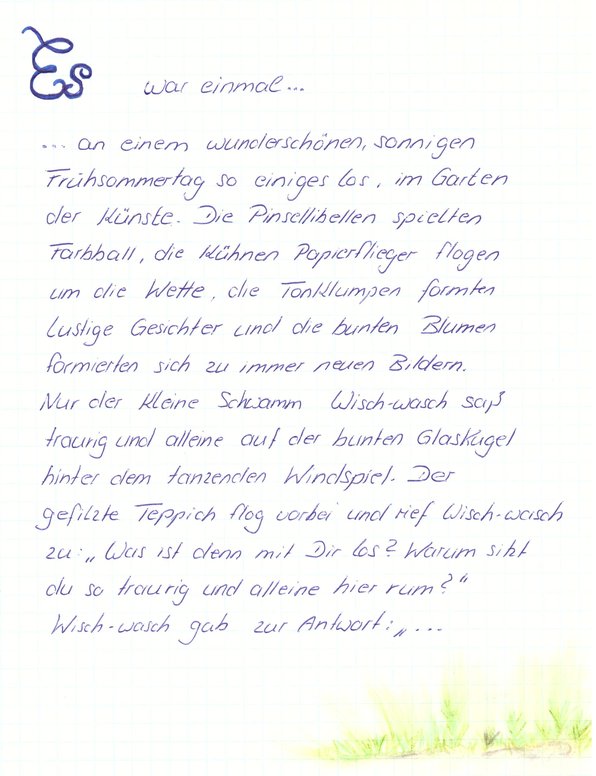 Es war einmal...
... an einem wunderschönen, sonnigen
Frühsommertag so einiges los, im Garten
der Künste. Die Pinsellibellen spielten
Farbball, die kühnen Papierflieger flogen
um die Wette, die Tonklumpen formten
lustige Gesichter und die bunten Blumen
formierten sich zu immer neuen Bildern.
Nur der kleine Schwamm Wisch-wasch saß
traurig und alleine auf der bunten Glaskugel
hinter dem tanzenden Windspiel. Der
gefilzte Teppich flog vorbei und rief Wisch-wasch
zu: „Was ist denn mit Dir los? Warum sitzt
du so traurig und alleine hier rum?“
Wisch-wasch gab zur Antwort: „...